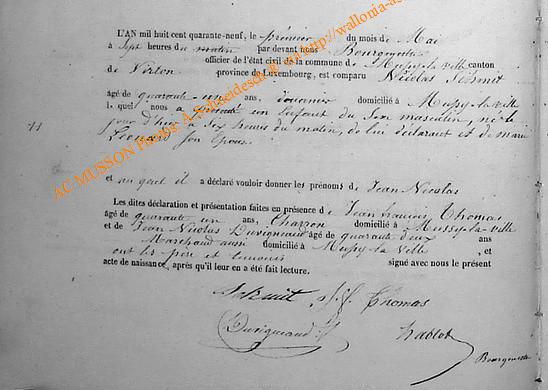 L'AN mil huit cent quarante-neuf, le premier du mois de Mai
à sept heures du matin par devant nous Bourgmestre
officier de l'état civil de la commune de Mussy-la-ville canton
de Virton province de Luxembourg, est comparu Nicolas Schmit
âgé de quarante un ans, douanier domicilié à Mussy-la-Ville
lequel nous a présenté un Enfant du Sexe masculin, né le
jour d'hui à six heures du matin, de lui déclarant et de marie
Léonard son Epouse
11
et auquel il a déclaré vouloir donner les prénoms de Jean Nicolas
Les dites déclaration et présentation faites en présence de Jean francois Thomas
âgé de quarante un ans, Charron domicilié à Mussy-la-ville
et de Jean Nicolas Duvigneaud âgé de quarante deux ans
Marchand aussi domicilié à Mussy-la Ville, et
ont les père et temoins signé avec nous le présent
acte de naissance, après qu'il leur en a été fait lecture.
Schmit J. f. Thomas
Duvigneaud
Bourgmestre
AC MUSSON Photos: A. Schneidesch & http://wallonia-as